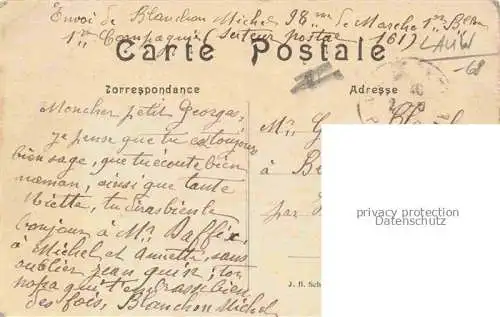 Envoi de Blanchon Michel 98me de Marche 1er Bon
1re Compagnie (Secteur postal 161)
Carte Postale
Correspondance
Adresse
Mon cher petit Georges,
je pense que tu es toujours
bien sage, que tu écoute bien
meman, ainsi que tante
Miette, tu diras bien le
bonjour à Mr Daffix,
à Michel et Annette, sans
oublier jean
papa qui t'embrasse bien
des fois, Blanchon Michel
Mr
à
par
J. B. Sch
privacy protection
Datenschutz